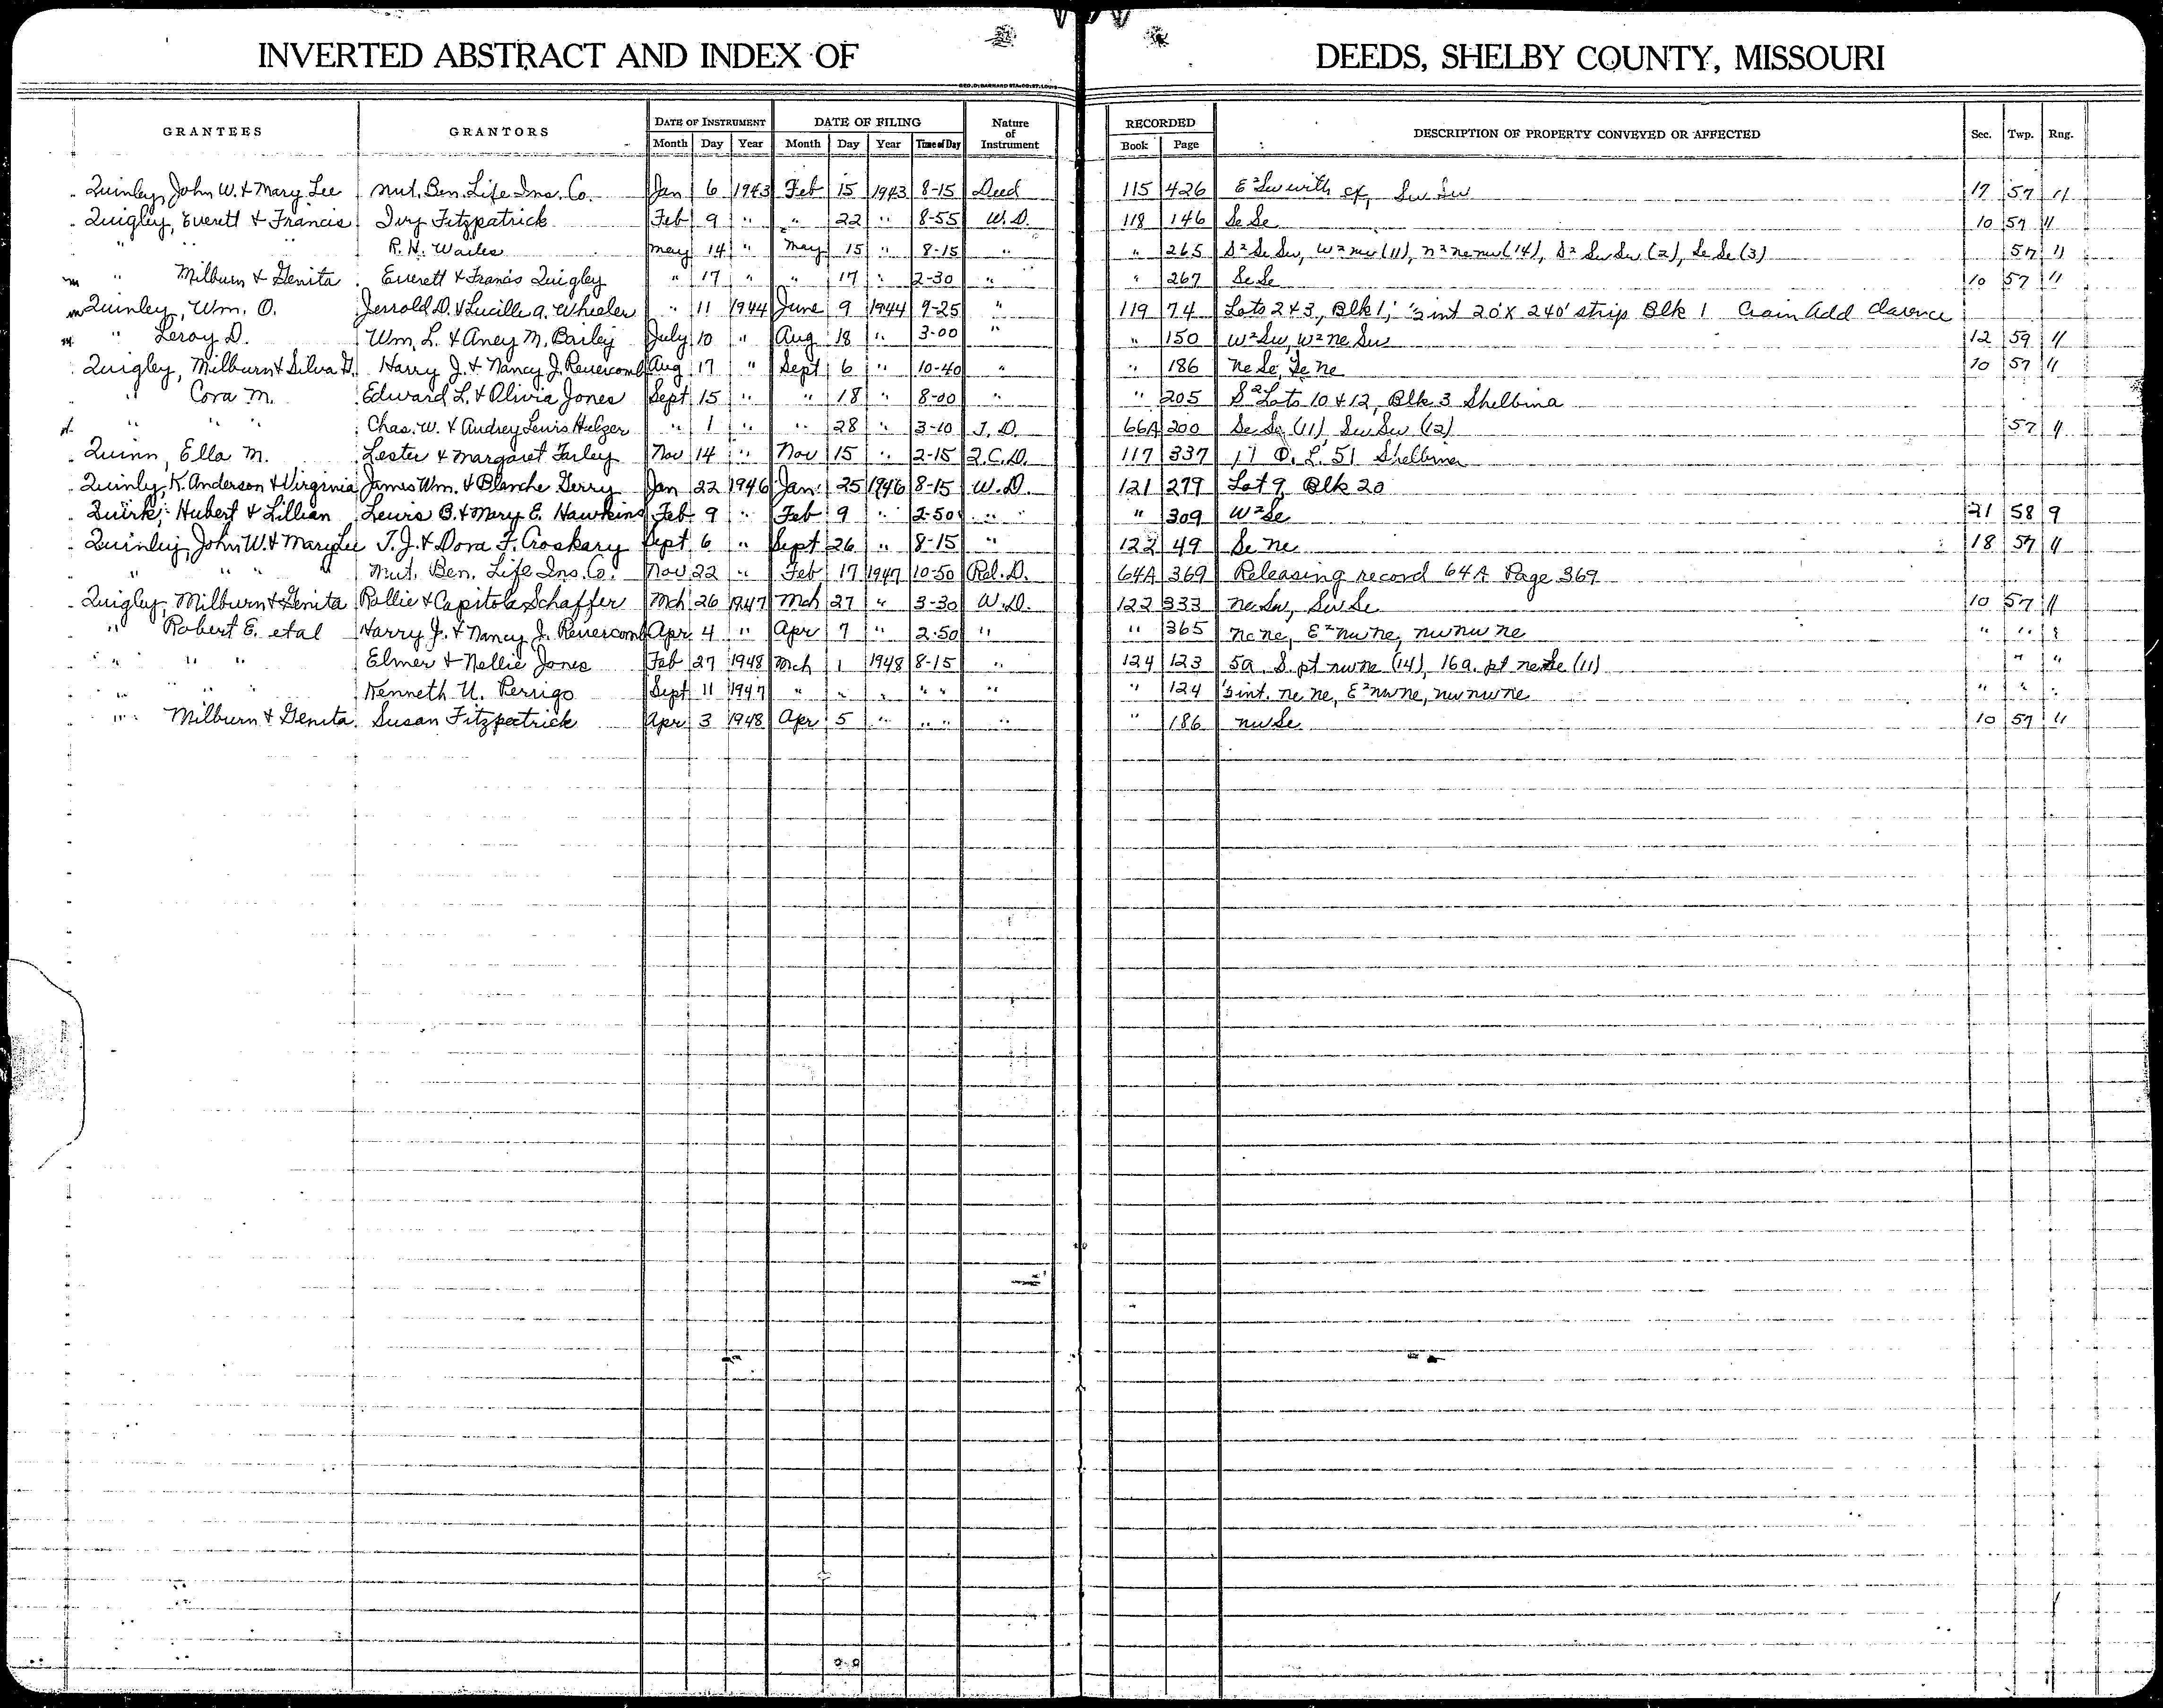 INVERTED ABSTRACT AND INDEX OF DEEDS, SHELBY COUNTY, MISSOURI
GEO. D. BARNARD STA. CO. ST. LOUIS
GRANTEES GRANTORS DATE OF INSTRUMENT DATE OF FILING Nature of Instrument RECORDED DESCRIPTION OF PROPERTY CONVEYED OR AFFECTED Sec. Twp. Rng.
Month Day Year Month Day Year Time of Day Book Page
Quinley, John W. & Mary Lee Mut. Ben. Life Ins. Co. Jan 6 1943 Feb 15 1943 8-15 Deed 115 426 E²Sw with ex, Sw Sw 17 57 11
Quigley, Everett & Francis Ivy Fitzpatrick Feb 9 " " 22 " 8-55 W.D. 118 146 Se Se 10 57 11
" " R. H. Wailes May 14 " May 15 " 8-15 " " 265 S² Se Sw, W² nw (11), n² ne nw (14), S² Sw Sw (2), Se Se (3) 57 11
" Milburn & Genita Everett & Francis Quigley " 17 " " 17 " 2-30 " " 267 Se Se 10 57 11
Quinley, Wm. O. Jerrold D. & Lucille A. Wheeler " 11 1944 June 9 1944 9-25 " 119 74 Lots 2 & 3, Blk 1; ½ int 20' X 240' strip Blk 1 Crain Add Clarence
" Leroy D. Wm. L. & Aney M. Bailey July 10 " Aug 18 " 3-00 " " 150 W² Sw, W² ne Sw 12 59 11
Quigley, Milburn & Silva G. Harry J. & Nancy J. Revercomb Aug 17 " Sept 6 " 10-40 " " 186 ne Se, Se ne 10 57 11
" Cora M. Edward L. & Olivia Jones Sept 15 " " 18 " 8-00 " " 205 S² Lots 10 & 12, Blk 3 Shelbina
" " " Chas. W. & Audrey Lewis Hulzer " 1 " " 28 " 3-10 T. D. 66A 200 Se Se (11), Sw Sw (12) 57 11
Quinn, Ella M. Lester & Margaret Farley Nov 14 " Nov 15 " 2-15 Q.C.D. 117 337 O. L. 51 Shelbina
Quinly, K. Anderson & Virginia James Wm. & Blanche Gerry Jan 22 1946 Jan 25 1946 8-15 W.D. 121 279 Lot 9, Blk 20
Quirk, Hubert & Lillian Lewis B. & Mary E. Hawkins Feb 9 " Feb 9 " 2-50 " " 309 W² Se 21 58 9
Quinley, John W. & Mary Lee T. J. & Dora F. Croskary Sept 6 " Sept 26 " 8-15 " 122 49 Se ne 18 57 11
" " " Mut. Ben. Life Ins. Co. Nov 22 " Feb 17 1947 10-50 Rel. D. 64A 369 Releasing record 64A Page 369
Quigley, Milburn & Genita Rollie & Capitola Schaffer Mch 26 1947 Mch 27 " 3-30 W.D. 122 333 ne Sw, Sw Se 10 57 11
" Robert E. etal Harry J. & Nancy J. Revercomb Apr 4 " Apr 7 " 2-50 " " 365 ne ne, E² nw ne, nw nw ne " " "
" " " Elmer & Nellie Jones Feb 27 1948 Mch 1 1948 8-15 " 124 123 5a. S. pt nw ne (14), 16a. pt ne Se (11) " "
" " " Kenneth U. Perrigo Sept 11 1947 " " " " " " " 124 ⅓ int. ne ne, E² nw ne, nw nw ne " " "
" Milburn & Genita Susan Fitzpatrick Apr 3 1948 Apr 5 " " " " " 186 nw Se 10 57 11